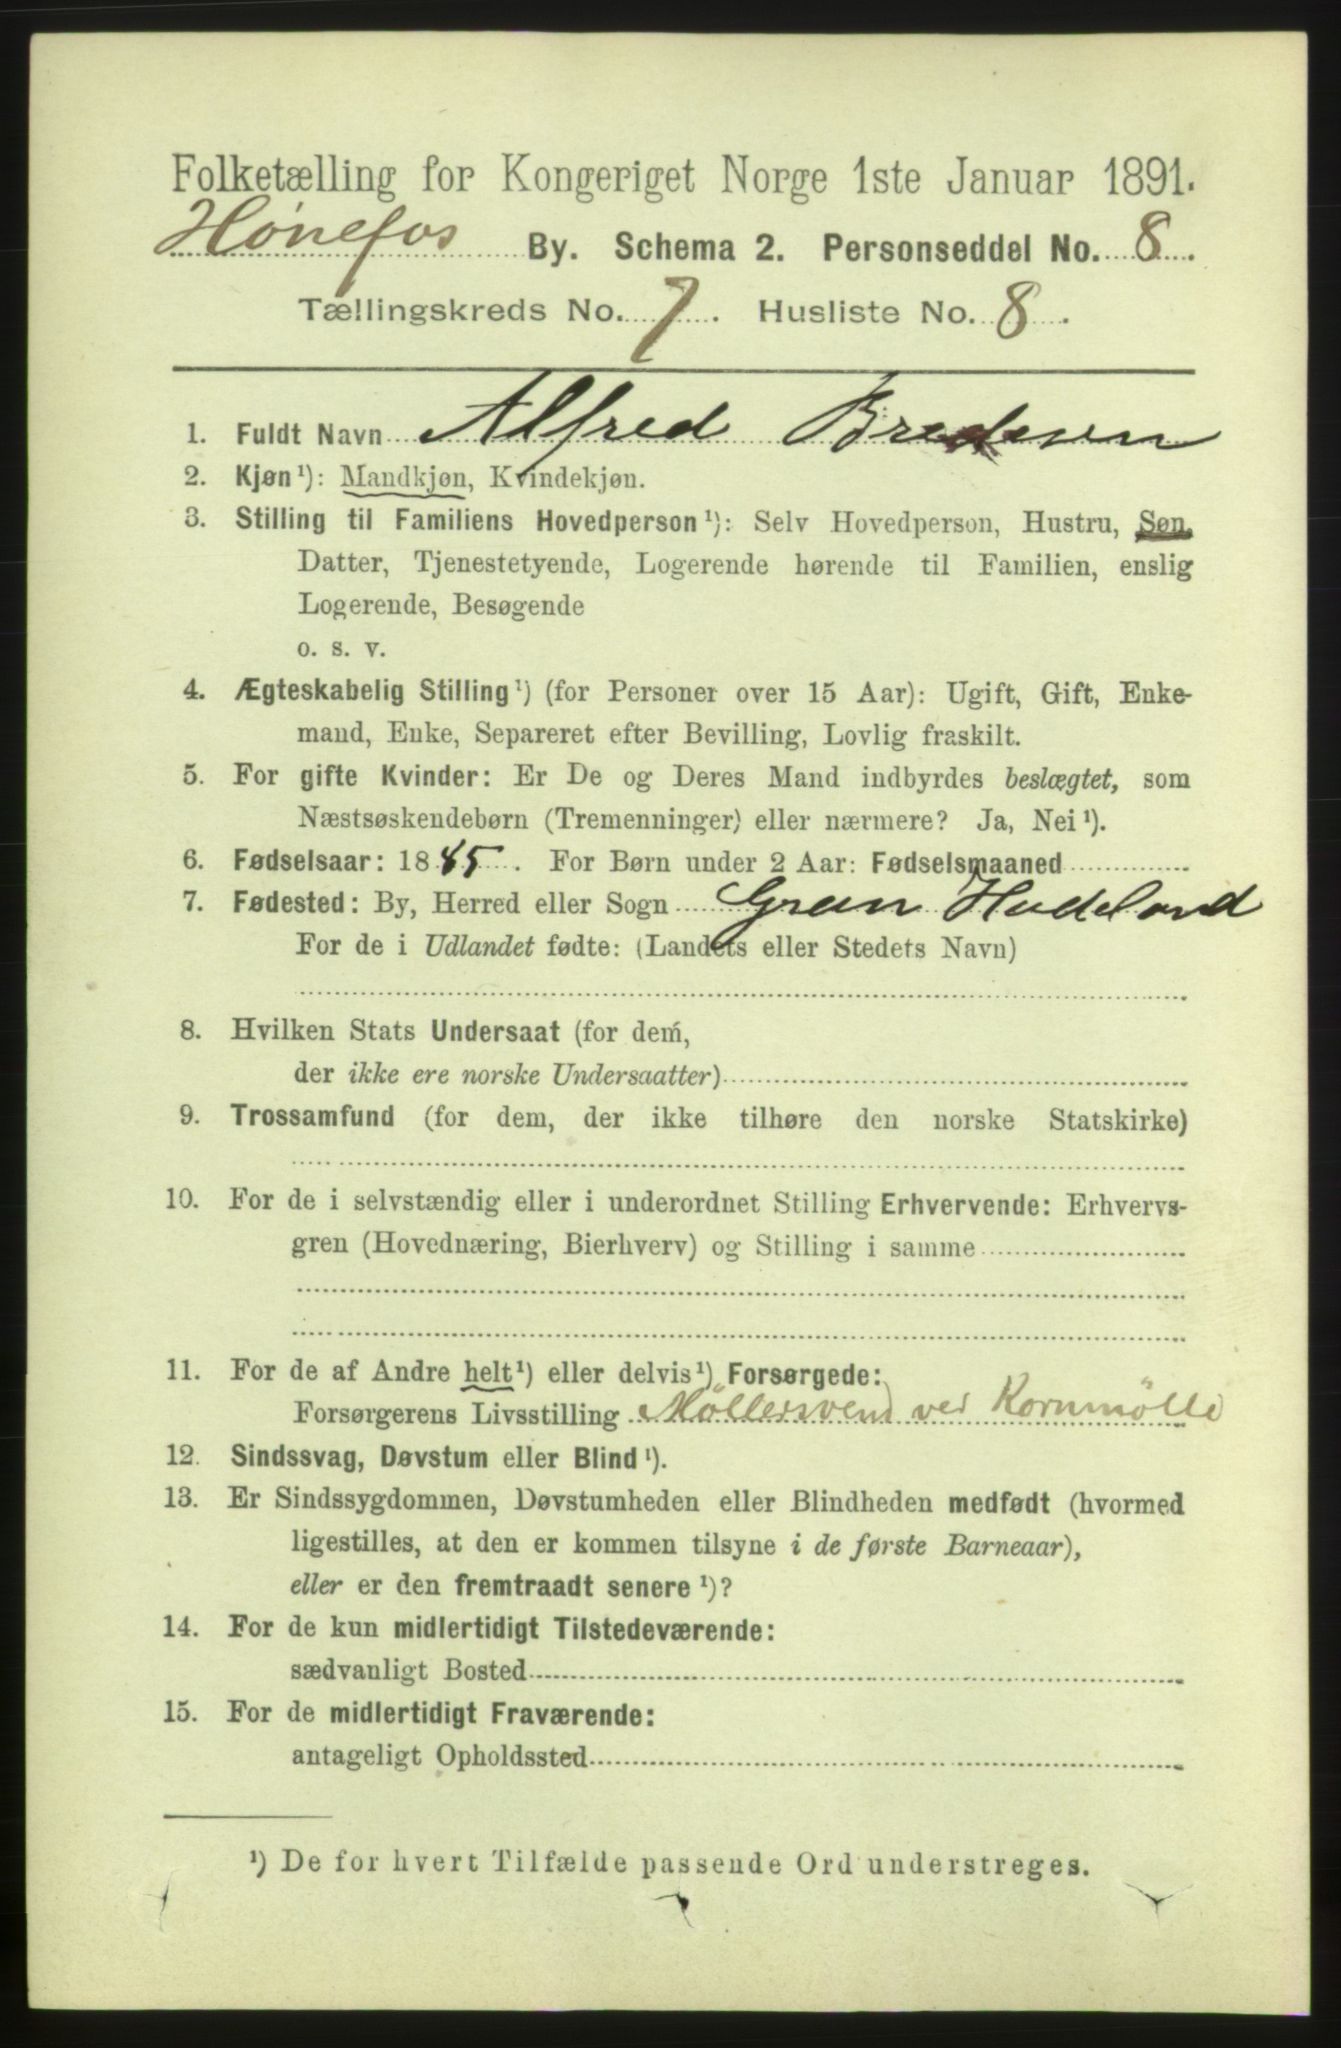 Folketælling for Kongeriget Norge 1ste Januar 1891.
Hønefos By. Schema 2. Personseddel No. 8.
Tællingskreds No. 7. Husliste No. 8.
1. Fuldt Navn Alfred Bredesen
2. Kjøn¹): Mandkjøn, Kvindekjøn.
3. Stilling til Familiens Hovedperson¹): Selv Hovedperson, Hustru, Søn,
Datter, Tjenestetyende, Logerende hørende til Familien, enslig
Logerende, Besøgende
o. s. v.
4. Ægteskabelig Stilling¹) (for Personer over 15 Aar): Ugift, Gift, Enke-
mand, Enke, Separeret efter Bevilling, Lovlig fraskilt.
5. For gifte Kvinder: Er De og Deres Mand indbyrdes beslægtet, som
Næstsøskendebørn (Tremenninger) eller nærmere? Ja, Nei¹).
6. Fødselsaar: 1885. For Børn under 2 Aar: Fødselsmaaned
7. Fødested: By, Herred eller Sogn Gran Hadeland
For de i Udlandet fødte: (Landets eller Stedets Navn)
8. Hvilken Stats Undersaat (for dem,
der ikke ere norske Undersaatter)
9. Trossamfund (for dem, der ikke tilhøre den norske Statskirke)
10. For de i selvstændig eller i underordnet Stilling Erhvervende: Erhvervs-
gren (Hovednæring, Bierhverv) og Stilling i samme
11. For de af Andre helt¹) eller delvis¹) Forsørgede:
Forsørgerens Livsstilling Møllersvend ved Kornmølle
12. Sindssvag, Døvstum eller Blind¹).
13. Er Sindssygdommen, Døvstumheden eller Blindheden medfødt (hvormed
ligestilles, at den er kommen tilsyne i de første Barneaar),
eller er den fremtraadt senere¹)?
14. For de kun midlertidigt Tilstedeværende:
sædvanligt Bosted
15. For de midlertidigt Fraværende:
antageligt Opholdssted
¹) De for hvert Tilfælde passende Ord understreges.